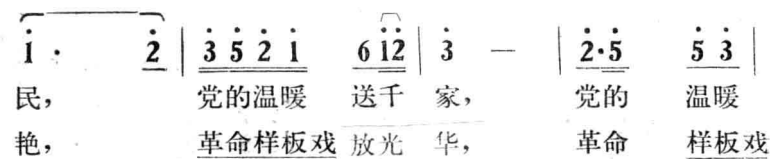 i · 2 | 3 5 2 i 6 i2 | 3 — | 2·5 5 3 |
民， 党的温暖 送千 家， 党的 温暖
艳， 革命样板戏 放光 华， 革命 样板戏